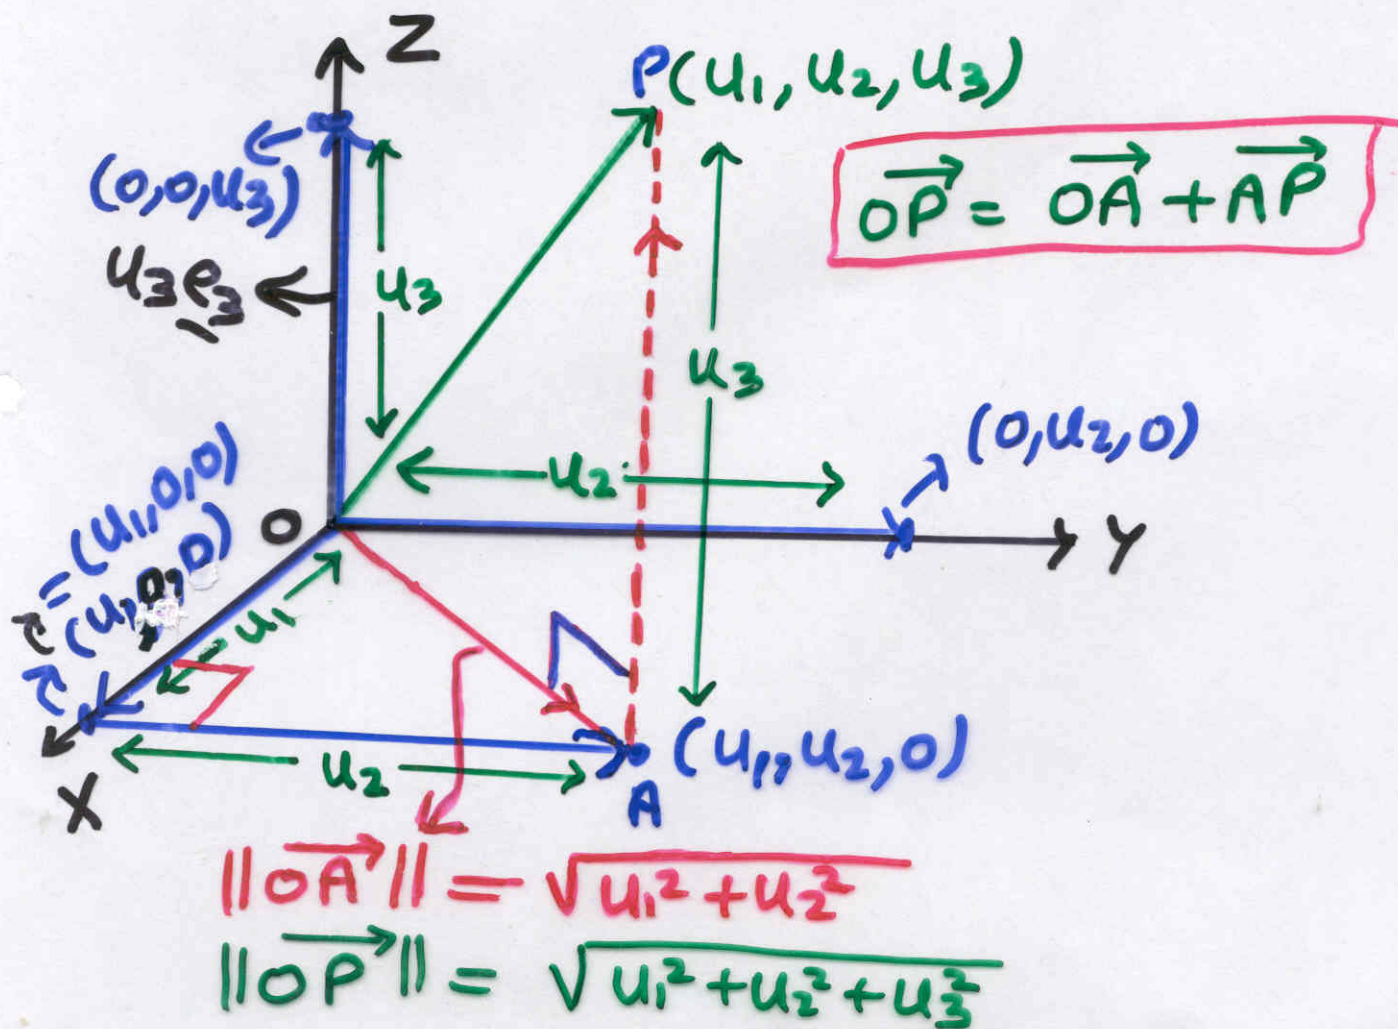 Z
P(u₁, u₂, u₃)
OP→ = OA→ + AP→
(0,0,u₃)
u₃e₃
u₃
u₃
(0,u₂,0)
u₂
O
Y
=(u₁,0,0)
(u₁,0,0)
u₁
X
u₂
(u₁,u₂,0)
A
||OA→|| = √(u₁² + u₂²)
||OP→|| = √(u₁² + u₂² + u₃²)